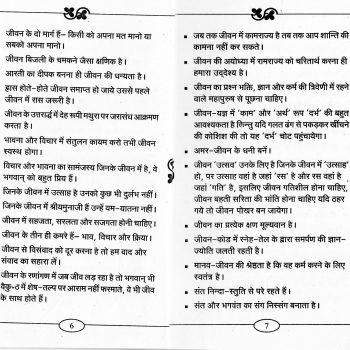 जीवन के दो मार्ग हैं– किसी को अपना मत मानो या
सबको अपना मानो।
जीवन बिजली के चमकने जैसा क्षणिक है।
आरती का दीपक बनना ही जीवन की धन्यता है।
ह्रास होते-होते जीवन समाप्त हो जाये उससे पहले
जीवन में रास जरूरी है।
जीवन के उत्तरार्द्ध में देह रूपी मथुरा पर जरासंध आक्रमण
करता है।
भावना और विचार में संतुलन कायम करो तभी जीवन
स्वस्थ होगा।
विचार और भावना का सामंजस्य जिनके जीवन में है, वे
भगवान् को बहुत प्रिय हैं।
जिनके जीवन में उत्साह है उनको कुछ भी दुर्लभ नहीं।
जिनके जीवन में श्रीयमुनाजी हैं उन्हें यम-यातना नहीं।
जीवन में सहजता, सरलता और सजगता होनी चाहिए।
जीवन के तीन ही कमरे हैं– भाव, विचार और क्रिया।
जीवन से विसंवाद को दूर करना है तो हम वाद और
संवाद का सहारा लें।
जीवन के रणांगण में जब जीव लड़ रहा है तो भगवान् भी
वैकुण्ठ में शेष-तल्प पर आराम नहीं फरमाते, वे भी जीव
के साथ होते हैं।
6
जब तक जीवन में कामराज्य है तब तक आप शान्ति की
कामना नहीं कर सकते।
जीवन की अयोध्या में रामराज्य को चरितार्थ करना ही
हमारा उद्देश्य है।
जीवन का प्रश्न भक्ति, ज्ञान और कर्म की त्रिवेणी में रहने
वाले महापुरुष से पूछना चाहिए।
जीवन-यज्ञ में 'काम' और 'अर्थ' रूप 'दर्भ' की बहुत
आवश्यकता है किन्तु यदि गलत ढंग से पकडकर खींचने
की कोशिश की तो यह 'दर्भ' चोट पहुंचायेगा।
अमर-जीवन के धनी बनें।
जीवन 'उत्सव' उनके लिए है जिनके जीवन में 'उत्साह'
हो, पर उत्साह वहां है जहां 'रस' है और रस वहां है
जहां 'गति' है, इसलिए जीवन गतिशील होना चाहिए,
जीवन बहती सरिता की भांति होना चाहिए यदि ठहर
गये तो जीवन पोखर बन जायेगा।
जीवन का प्रत्येक क्षण मूल्यवान है।
जीवन-कोड में स्नेह-तेल के द्वारा समर्पण की ज्ञान-
ज्योति जलती रहती है।
मानव-जीवन की श्रेष्ठता है कि वह कर्म करने के लिए
स्वतंत्र है।
संत निन्दा-स्तुति से परे रहते हैं।
संत और भगवंत का संग निस्संग बनाता है।
7